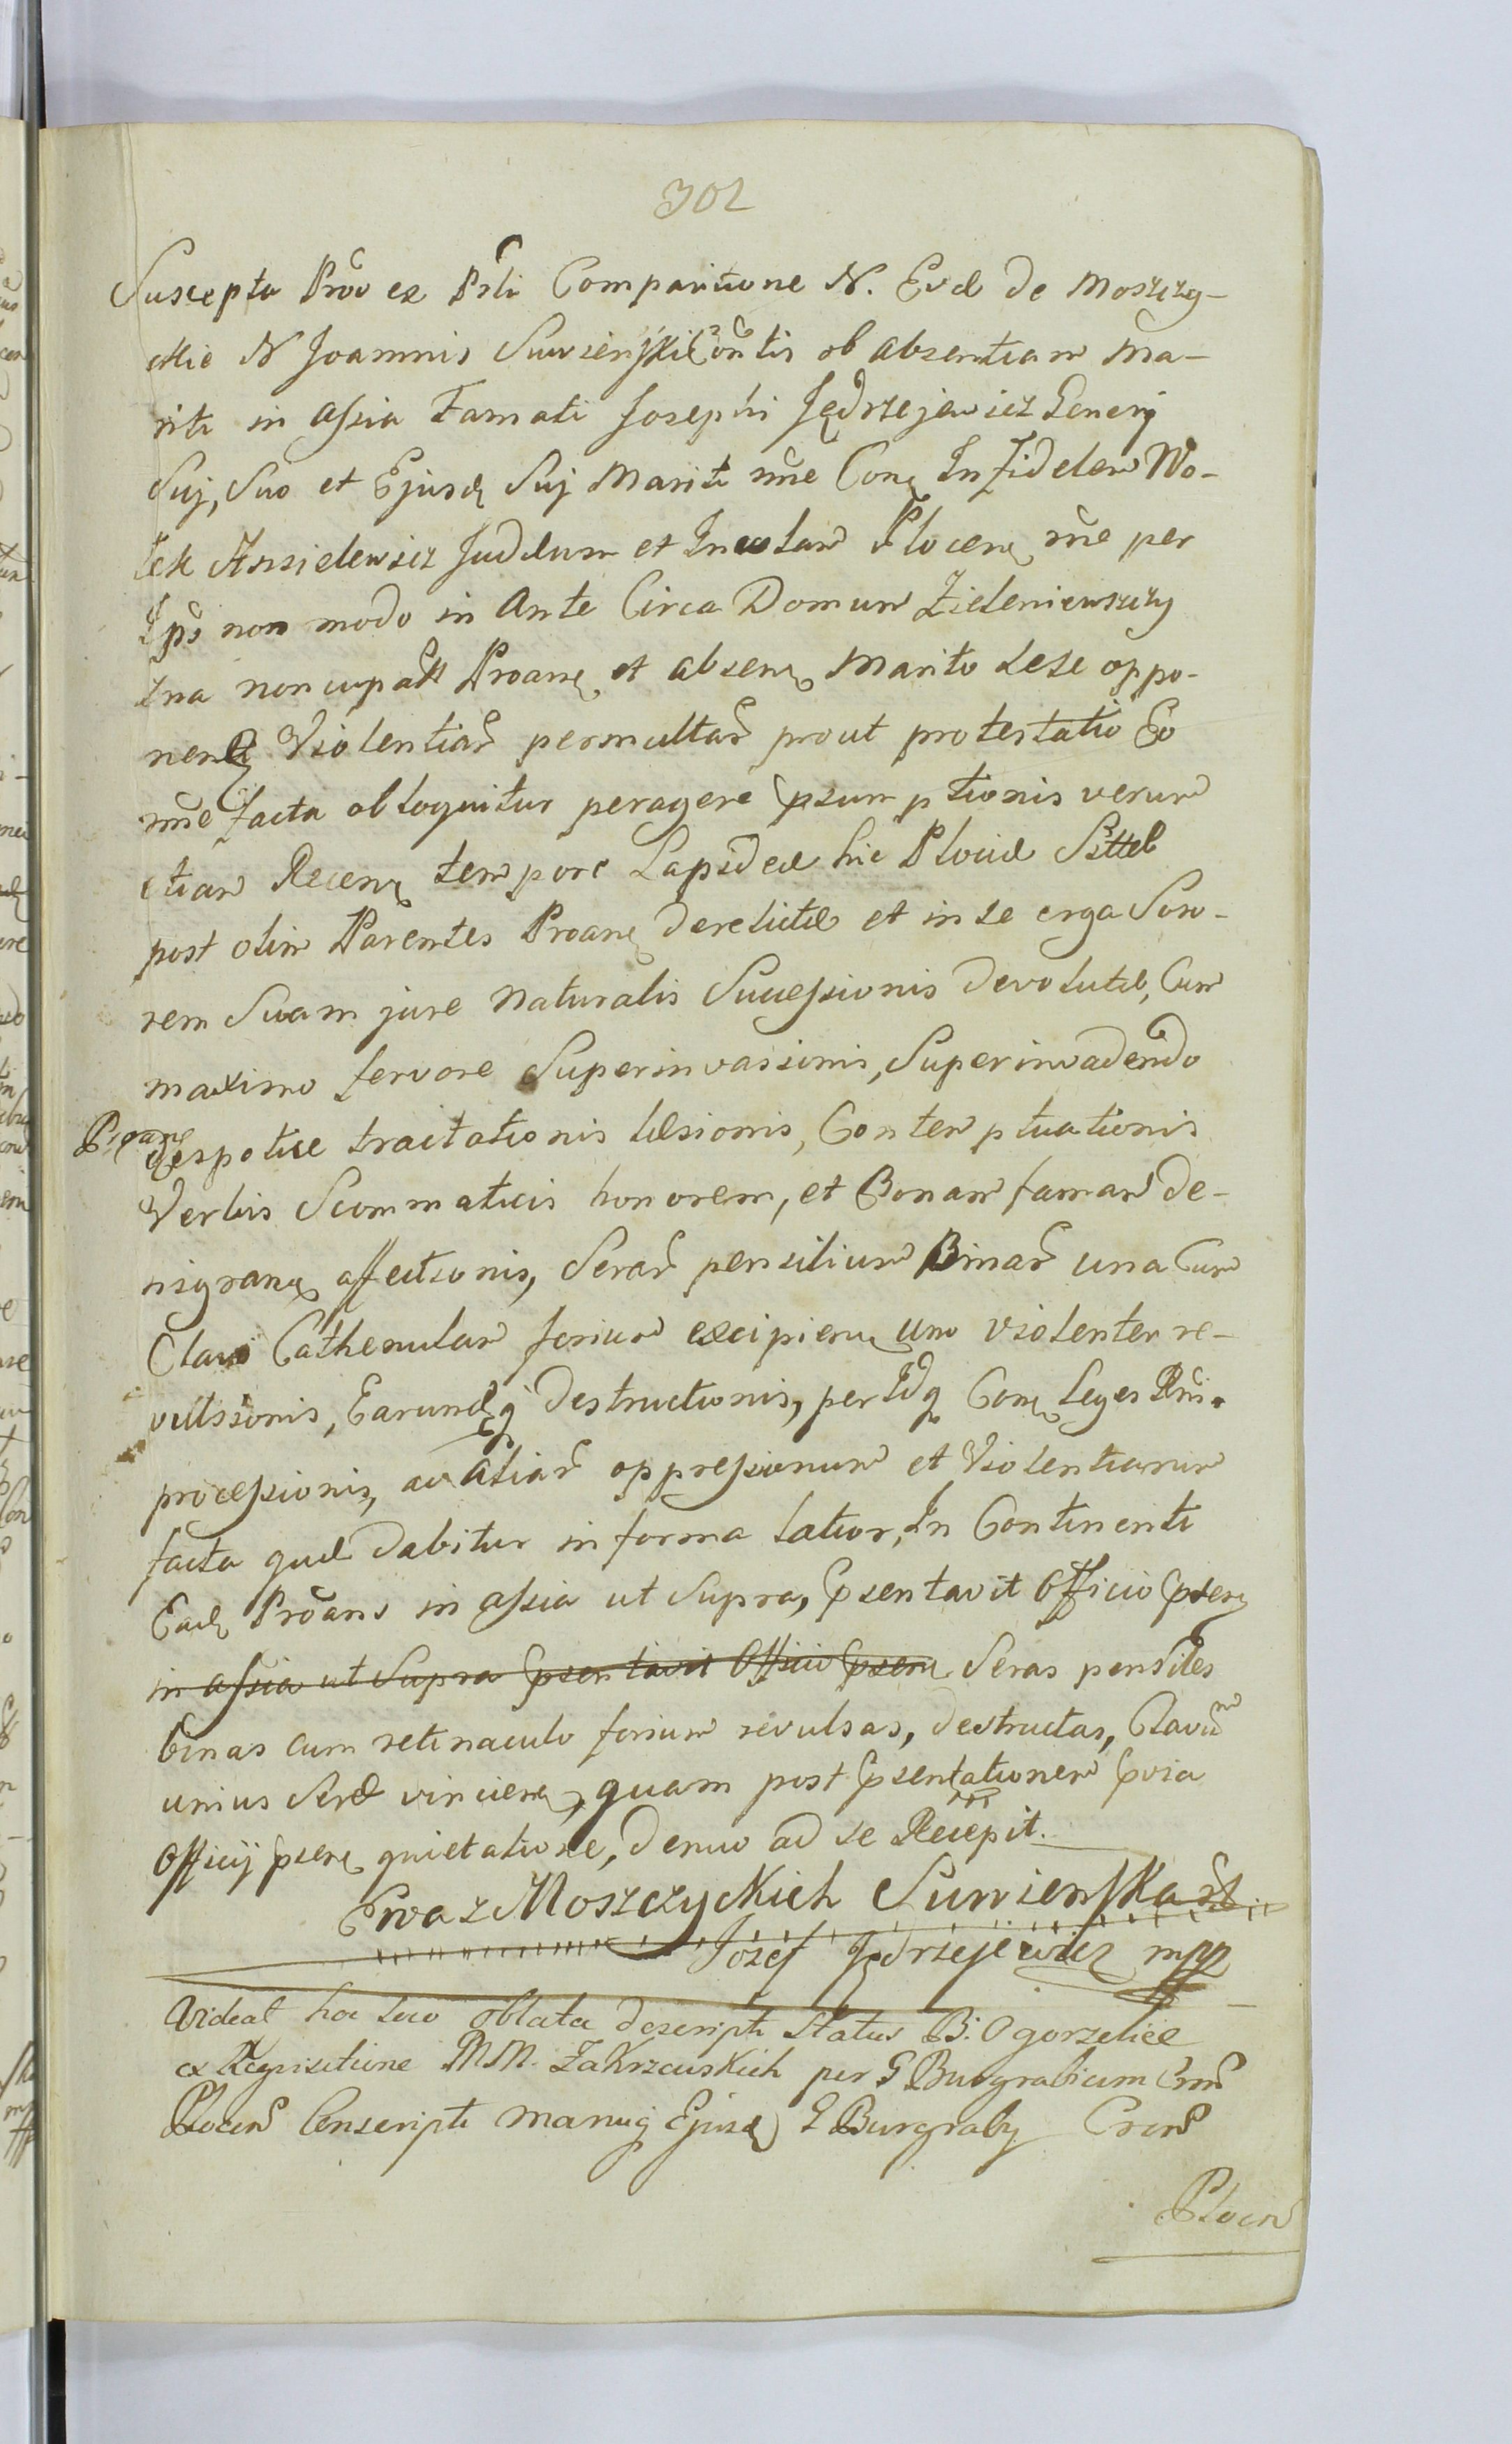 302
Suscepta Prõo ex Prsti Comparitione N. Evæ de Moszczy-
ckie N Joannis Suwieńskie õntis ob absentiam Ma-
riti in assia Famati Josephi Jędrzejewicz Generij
Suj, Suo et Ejusd Suj Mariti nñe Con Infidelem Wo-
lek Anzielewicz Judæum et Incolam Plocen nñe per
Ips non modo in Ante Circa Domum Zieleniewszczy
zna noncupatt Proane et absen Marito sese oppo-
nen Violentiar permultar prout protestatio Eo
nñe facta obloquitur peragere psumptionis verum
etiam Recen tempore Lapideæ hic Plociæ Sittæ
post olim Parentes Proan derelictæ et in se erga Soro-
rem Suam jure Naturalis Successionis devolutæ, Cum
maximo fervore Superinvassionis, Superinvadendo
Proane
despotice tractationis læsionis, Contemptuationis
Verbis Scommaticis honorem, et Bonam famam de-
nigran affectionis, Serar pensilium Binar una Cum
Clavi Cathenulam forium excipien uno violenter re-
vulssionis, Earundq destructionis, per Idq Con Leges Rni.
processionis, ac aliar oppressionum et Violentiarum
facta quæ dabitur in forma latior, In Continenti
Ead Proans in assia ut Supra, psentavit Officio psen
in assia ut Supra psentavit Officio psen Seras pensiles
binas cum retinaculo forium revulsas, destructas, Clavum
unius Seræ vincien, quam post psentationem pvia
Officij psen quietatione, denuo ad se Recepit.
Ewa z Moszczyckich Suwieńska
Jozef Jędrzejewicz mpp
Videat hoc loco oblata descripti Status B. Ogorzelice
ex Requisitione MM. Zakrzewskich per G Burgrabium Crem
Plocen Conscripti manuq Ejusd G Burgraby Cren
Plocen